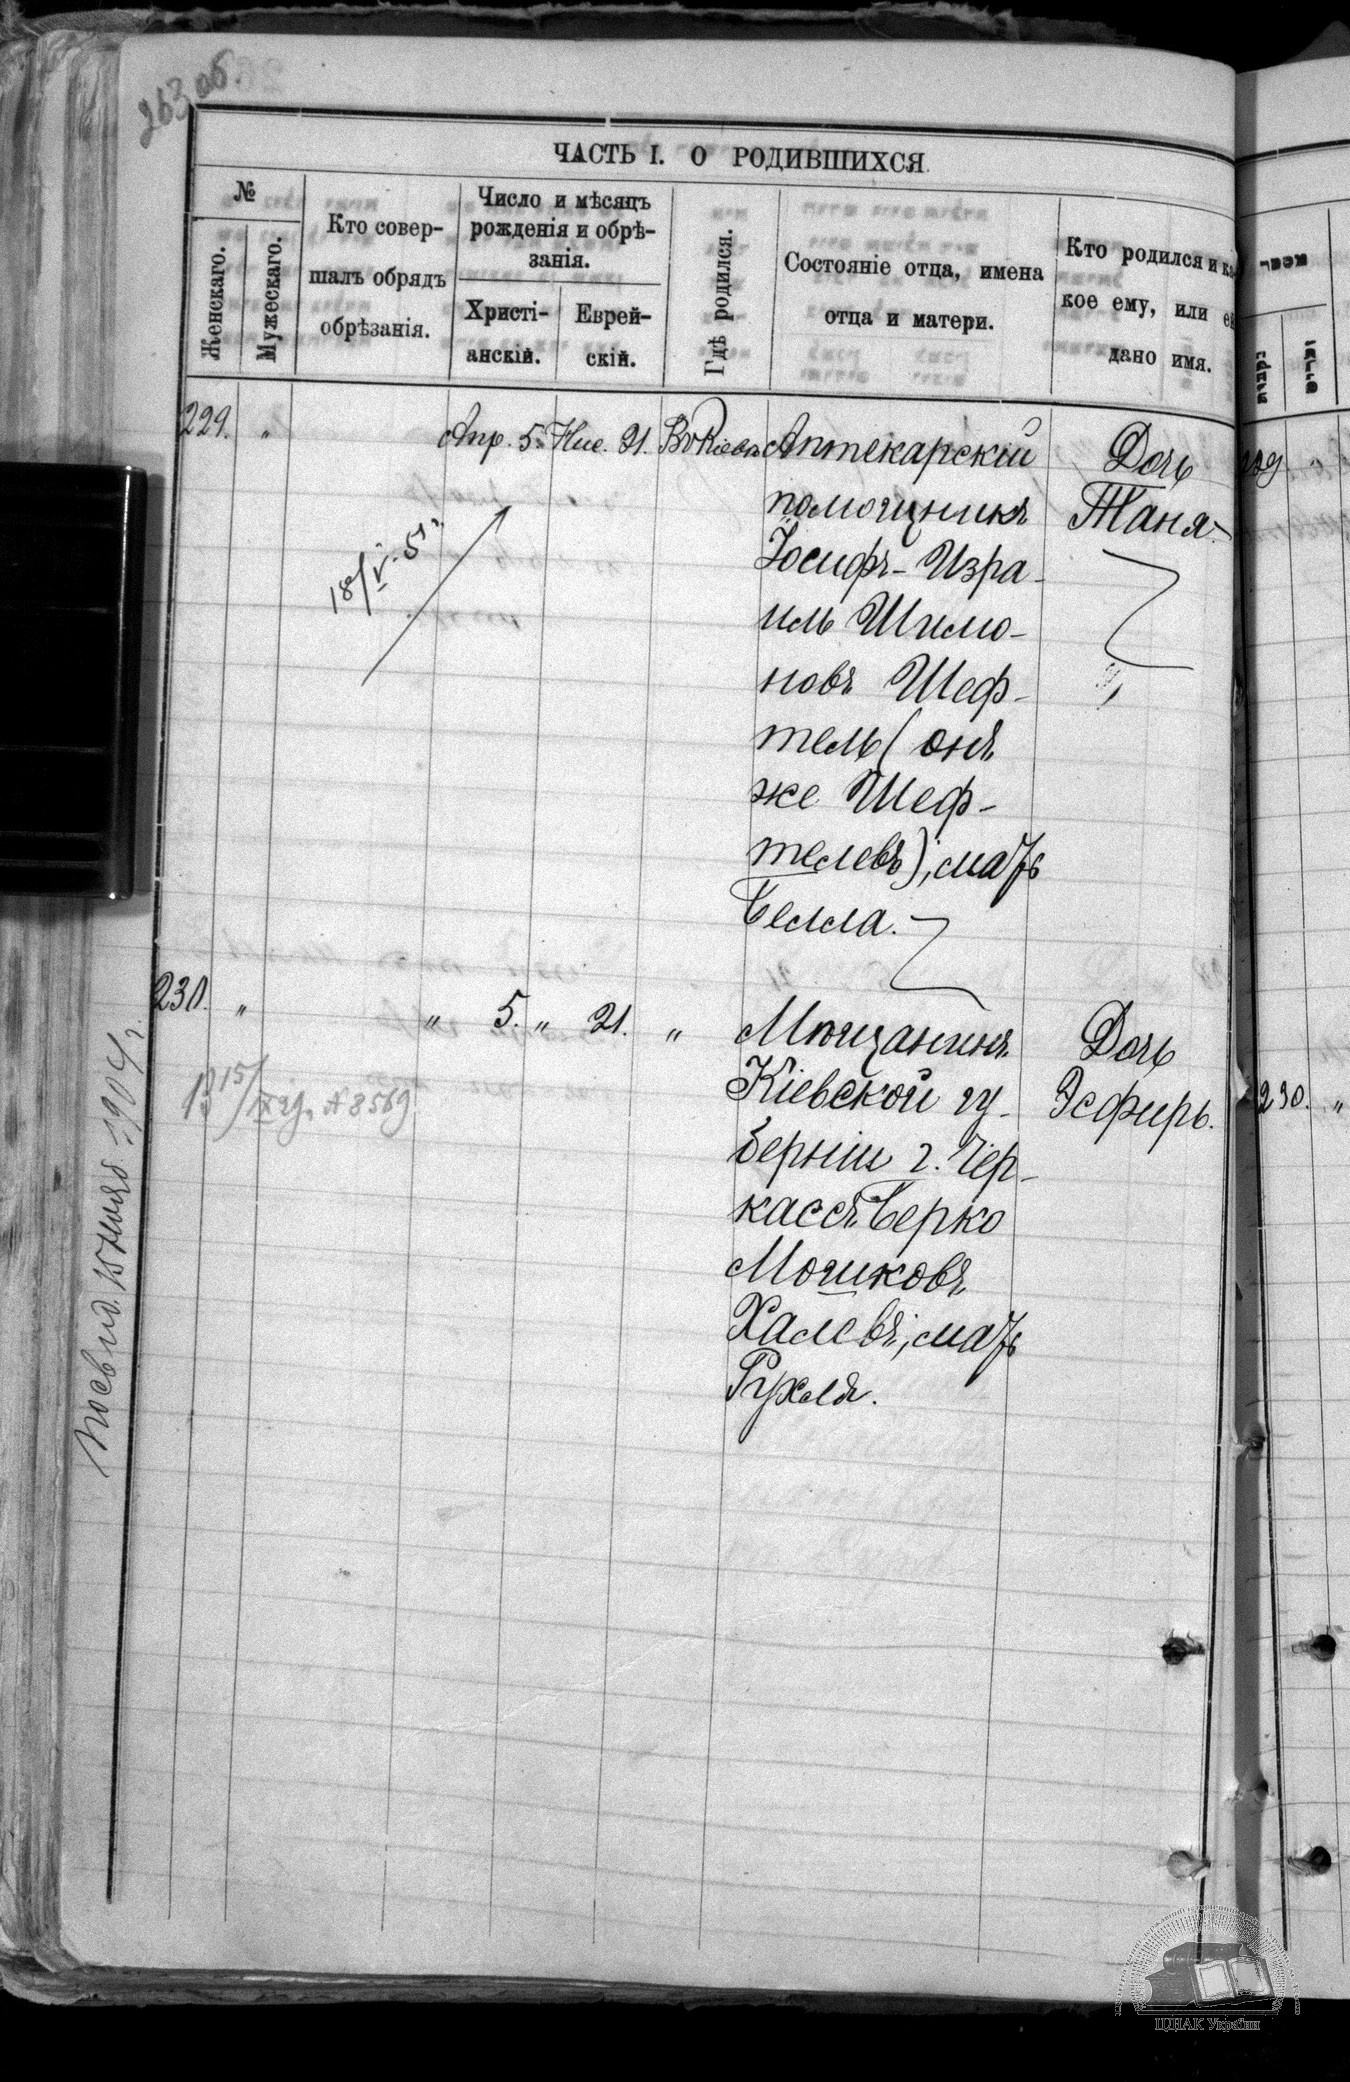 263 об.
ЧАСТЬ I. О РОДИВШИХСЯ.
№
Женскаго.
Мужескаго.
Кто совер-
шалъ обрядъ
обрѣзанія.
Число и мѣсяцъ
рожденія и обрѣ-
занія.
Христі-
анскій.
Еврей-
скій.
Гдѣ родился.
Состояніе отца, имена
отца и матери.
Кто родился и ка-
кое ему, или ей
дано имя.
229. " Апр. 5. Нис. 21. Въ Кіевѣ Аптекарскій
помощникъ
Іосифъ-Изра-
иль Шимо-
новъ Шеф-
тель (онъ
же Шеф-
телевъ); мать
Белла.
Дочь
Таня.
18/V-51 г.
230. " " 5. " 21. " Мѣщанинъ
Кіевской гу-
берніи г. Чер-
кассъ Берко
Мошковъ
Халевъ; мать
Рухля.
Дочь
Эсфирь.
229
230. "
ЦДІАК України